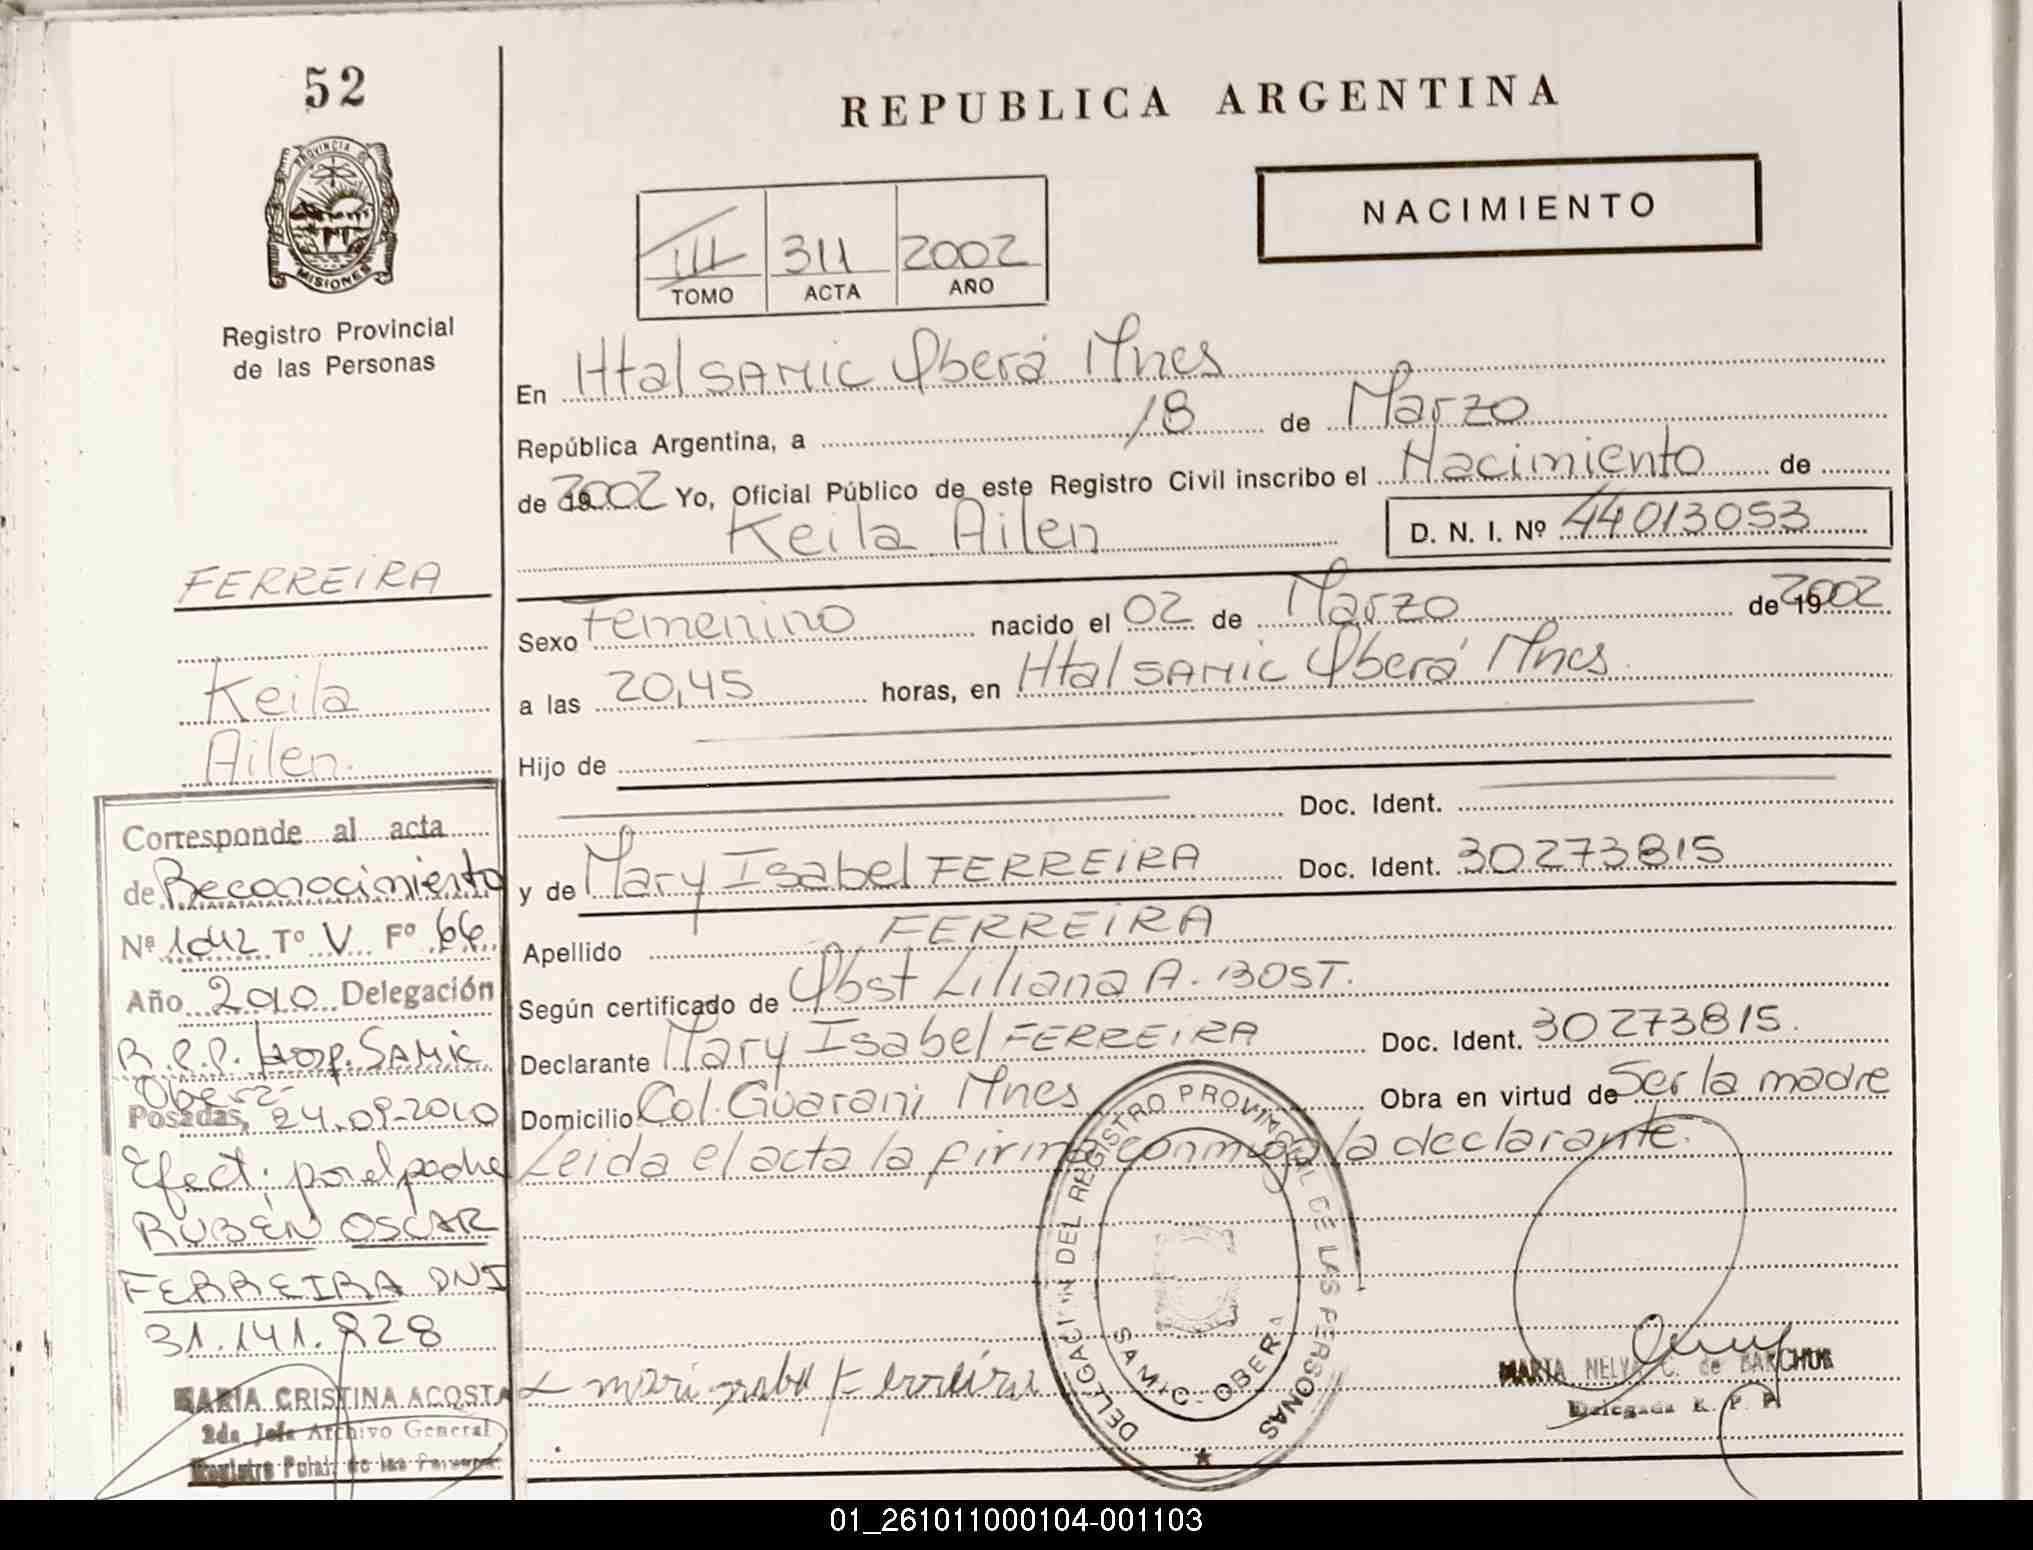 52
PROVINCIA DE
MISIONES
Registro Provincial
de las Personas
REPUBLICA ARGENTINA
NACIMIENTO
III 311 2002
TOMO ACTA AÑO
En Htal SAMIC Oberá Mnes
República Argentina, a 18 de Marzo
de 2002 Yo, Oficial Público de este Registro Civil inscribo el Nacimiento de
Keila Ailen D. N. I. Nº 44013053
Sexo Femenino nacido el 02 de Marzo de 19 2002
a las 20,45 horas, en Htal SAMIC Oberá Mnes.
Hijo de
Doc. Ident.
y de Mary Isabel FERREIRA Doc. Ident. 30273815
Apellido FERREIRA
Según certificado de Obst Liliana A. BOST.
Declarante Mary Isabel FERREIRA Doc. Ident. 30273815.
Domicilio Col. Guarani Mnes Obra en virtud de Ser la madre
Leida el acta la firma conmigo la declarante.
DELEGACION DEL REGISTRO PROVINCIAL DE LAS PERSONAS
SAMIC - OBERA
MARIA NELVA C. de BARCHUK
Delegada R. P. P.
FERREIRA
Keila
Ailen.
Corresponde al acta
de Reconocimiento
Nº 1042 Tº V Fº 66
Año 2010 Delegación
R.P.P. Hosp. SAMIC
Oberá
Posadas, 24.09-2010
Efect; por el padre
RUBEN OSCAR
FERREIRA DNI
31.141.828
MARIA CRISTINA ACOSTA
2da Jefa Archivo General
01_261011000104-001103